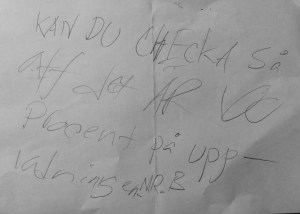 KAN DU CHECKA SÅ
ATT det ÄR 100
Procent på upp-
ladningen NR. 8